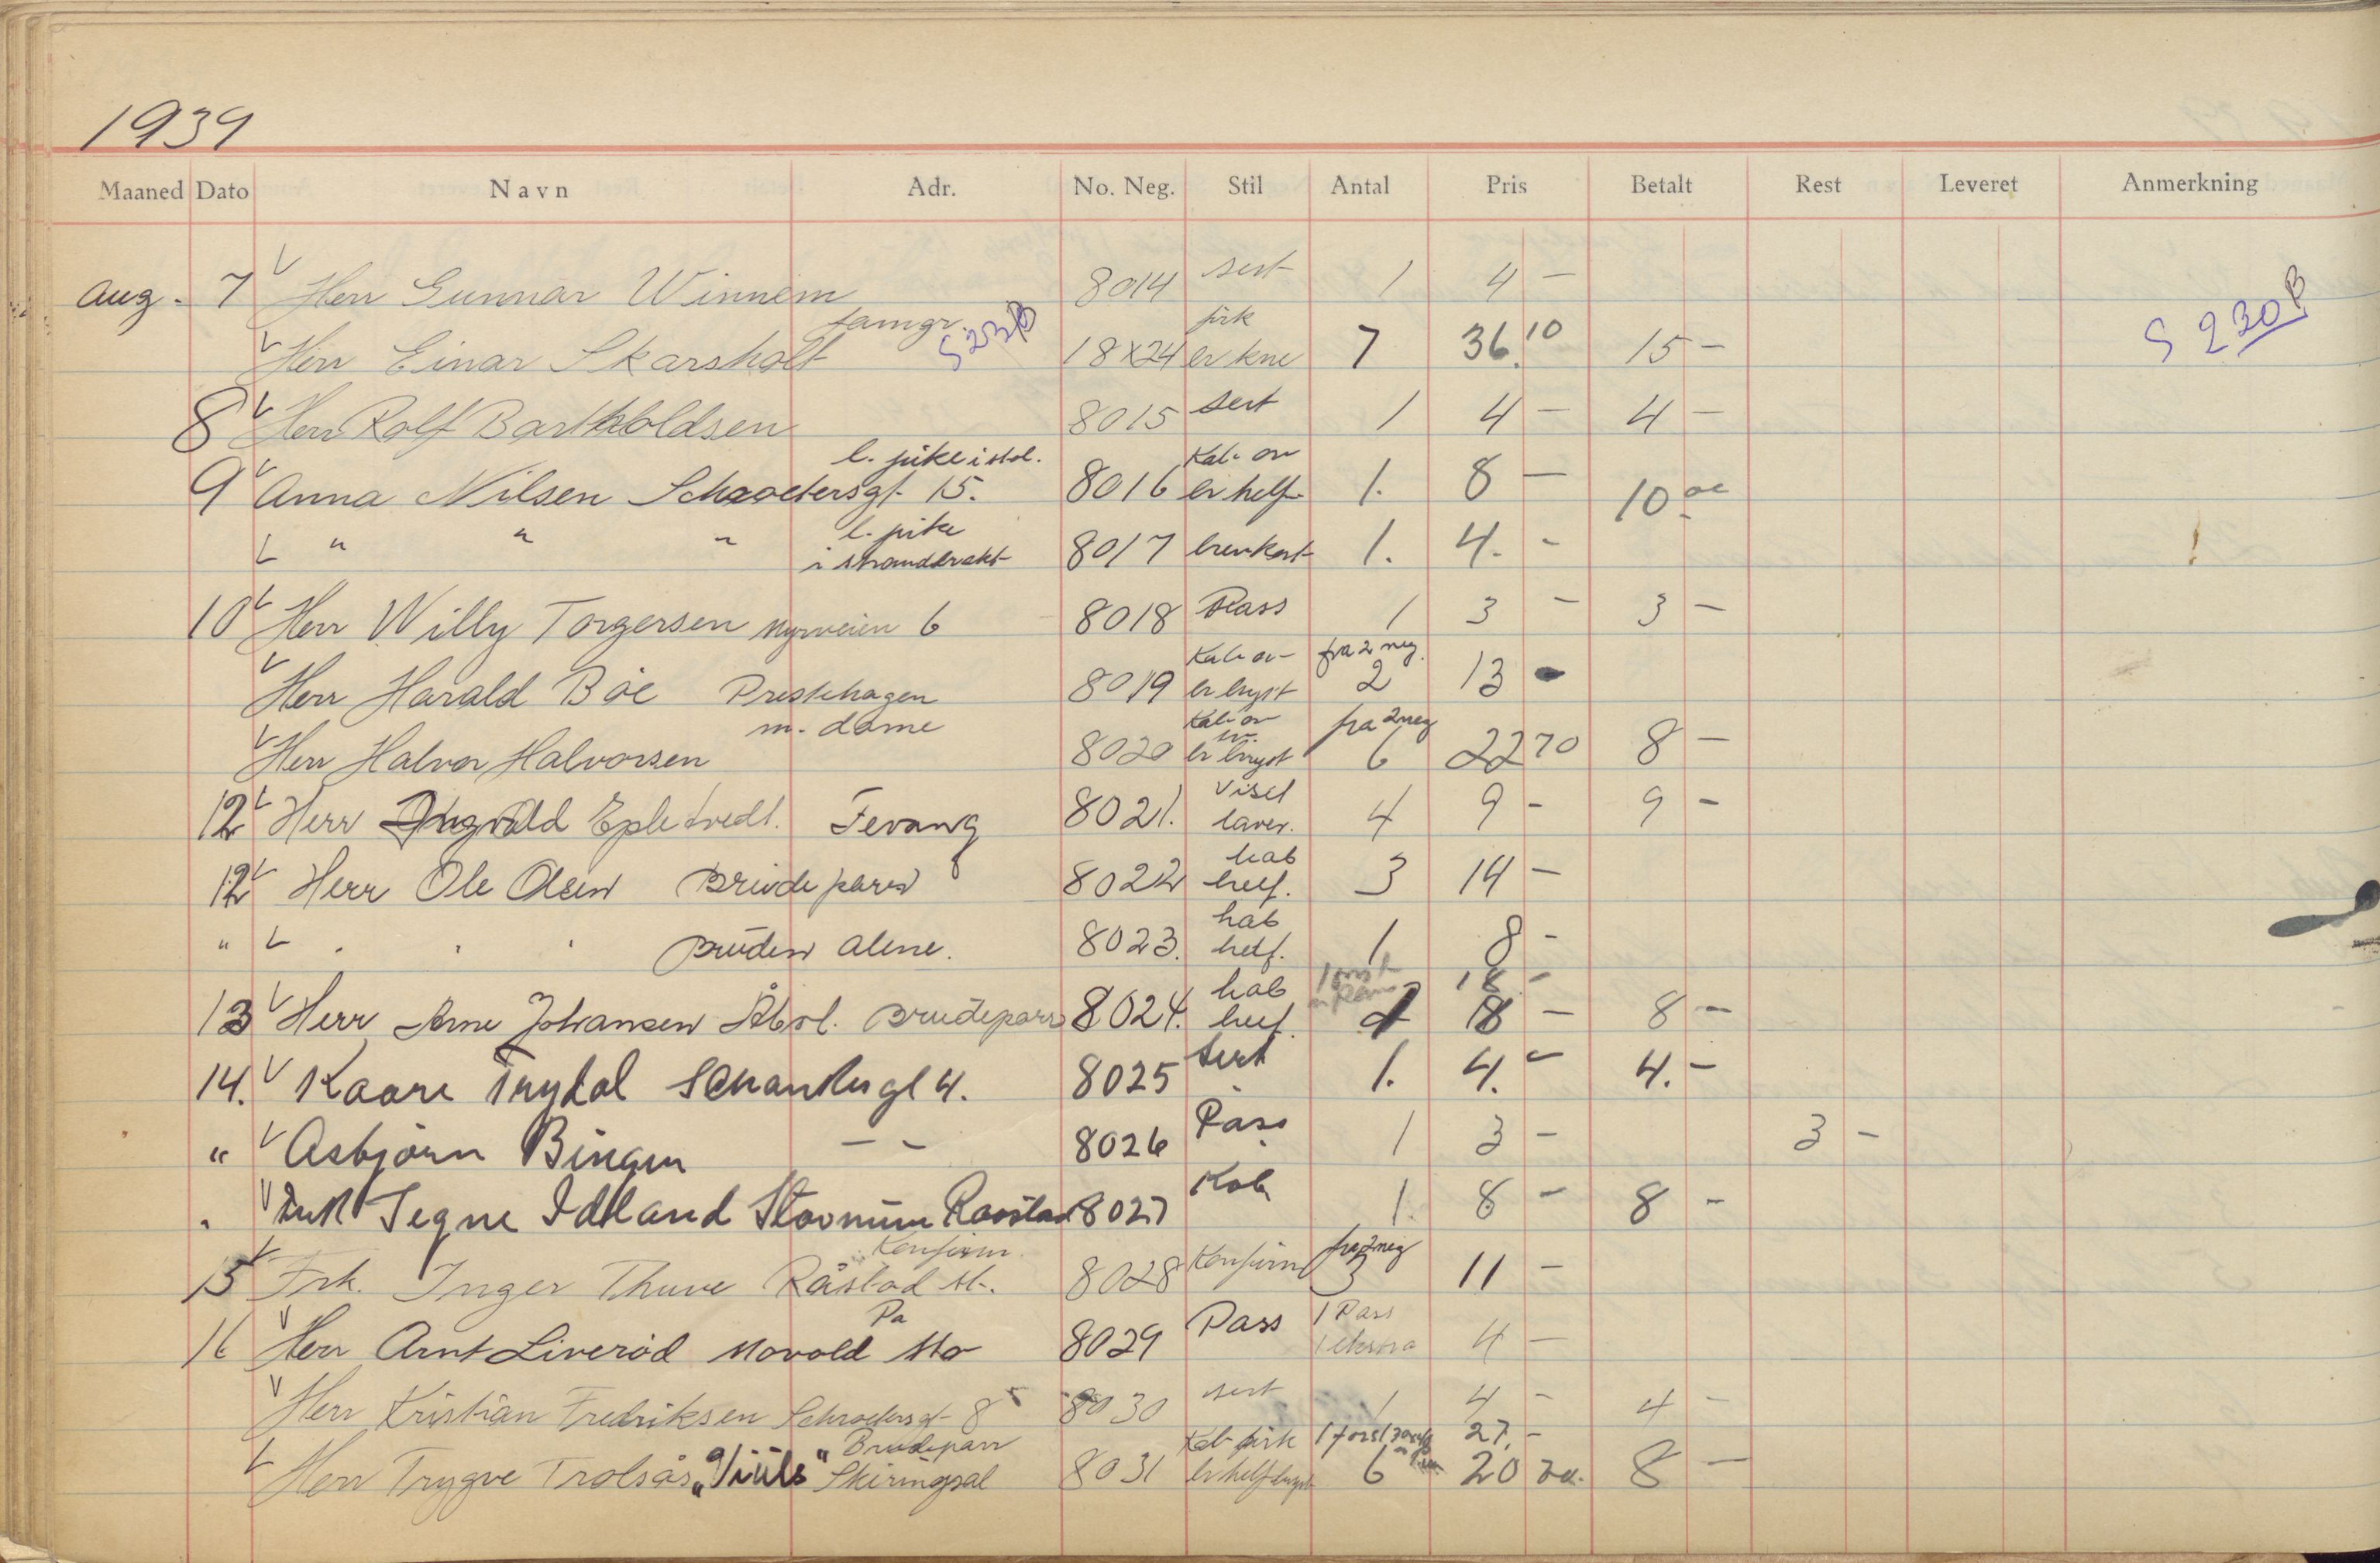 1939
Maaned Dato Navn Adr. No. Neg. Stil Antal Pris Betalt Rest Leveret Anmerkning
Aug. 7 Herr Gunnar Winnem 8014 sert 1 4 –
famgr. S 230 B
Herr Einar Skarsholt 18x24 er kne 7 36.10 15 – S 230 B
8 Herr Rolf Bartholdsen 8015 sert 1 4 – 4 –
l. pike i stol. Kab. ov
9 Anna Nilsen Schrøetersgt. 15. 8016 br helf. 1. 8 – 10
" " " l. pike
i stranddrakt 8017 brevkort 1. 4. -
10 Herr Willy Torgersen Myrveien 6 8018 Pass 1 3 – 3 –
Kab. ov fra 2 neg.
Herr Harald Bøe Prestehagen 8019 br bryst 2 13
m. dame Kab. ov fra 2 neg
Herr Halvor Halvorsen 8020 br bryst 6 22 70 8 –
12 Herr Ingvald Epletvedt. Fevang 8021. Visit 4 9 - 9 -
12 Herr Ole Olsen Brudepar 8022 kab helf. 3 14 –
" bruden alene. 8023. kab helf. 1 8 -
18 -
13 Herr Arne Johansen Brudepar 8024. kab 18 – 8 –
14. Kaare Trydal Schankesgt 4. 8025 Sert 1. 4. – 4. –
" Asbjørn Bingen – – 8026 Pass 1 3 – 3 –
" Frk Tegne Idland Stovnum Raastad 8027 Kab 1. 8 – 8 –
Konfirm. fra 2 neg
15 Frk. Inger Thuve Råstad st. 8028 Konfirm 3 11 –
Pa 1 Pass
16 Herr Arnt Liverød Movold Mo 8029 Pass 1 ekstra 4 –
Herr Kristian Fredriksen Schroetersgt. 8 8030 sert 1 4 – 4 –
Brudepar Kab. 27. –
Herr Trygve Trolsås "Viuls" Skiringsal 8031 6 20 8 –